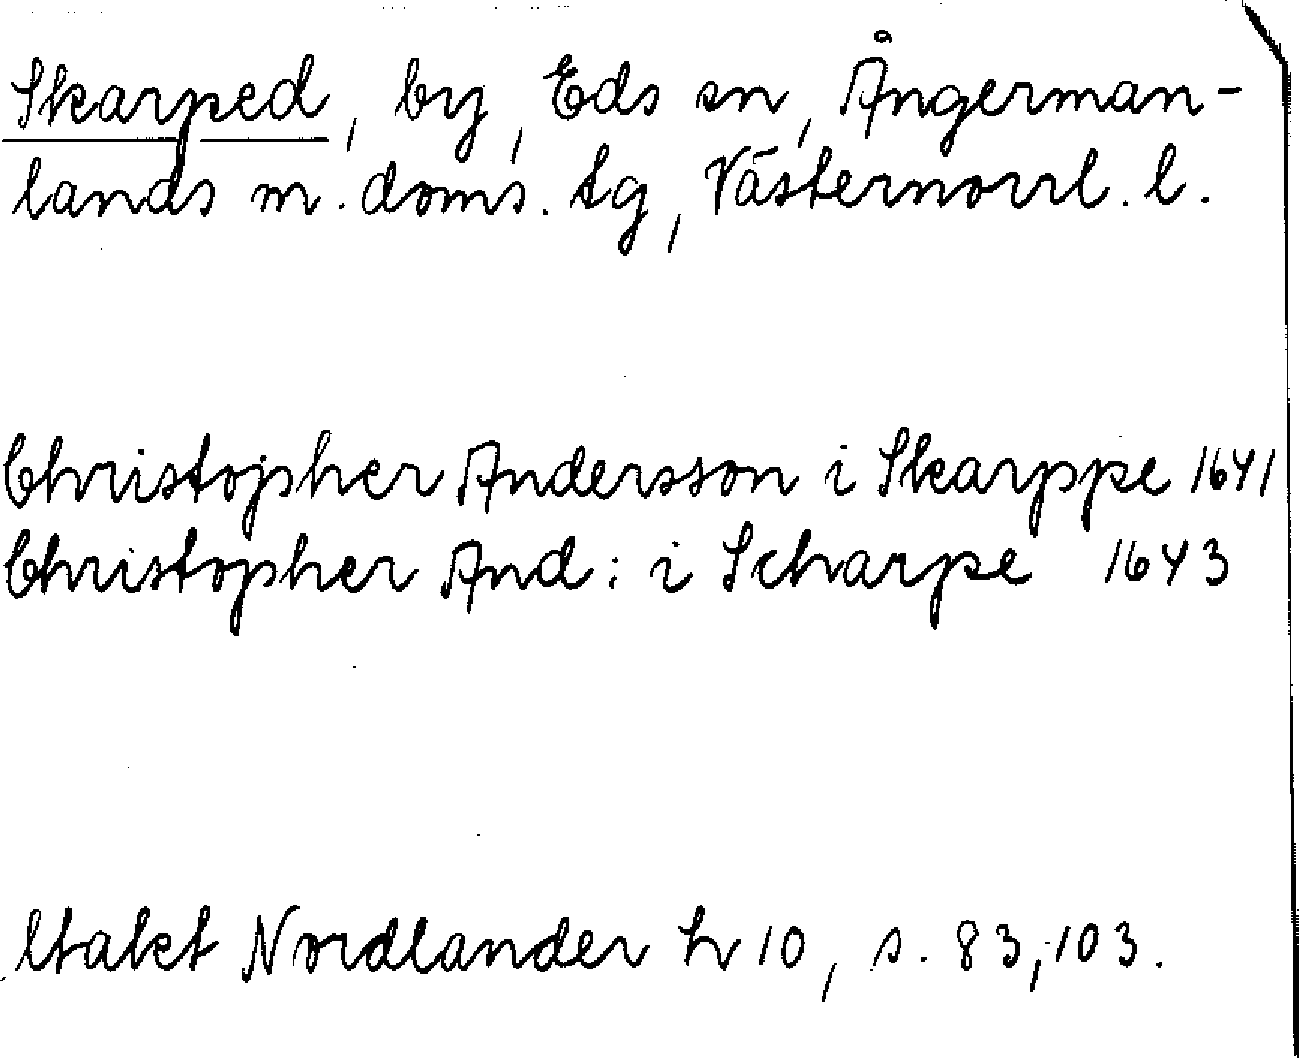 Skarped, by, Eds sn, Ångerman-
lands m. doms. tg, Västernorrl. l.
Christopher Andersson i Skarppe 1641
Christopher And: i Scharpe 1643
Utakt Nordlander h 10, s. 83, 103.